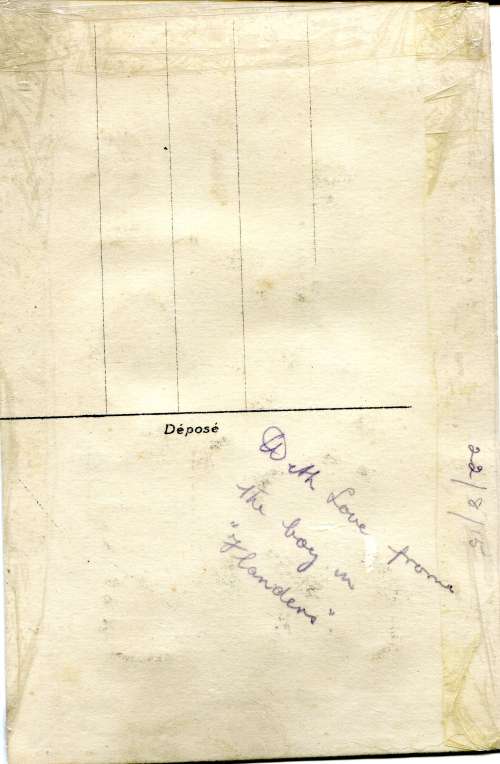 Déposé
With Love from
the boy in
"Flanders"